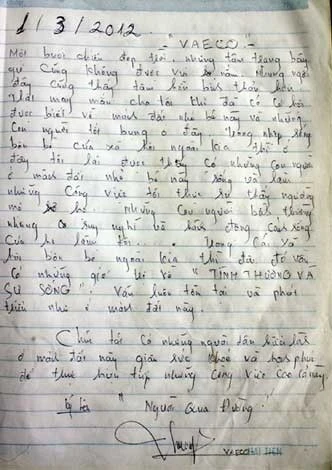 1/3/2012
"VAECO"
Một buổi chiều đẹp trời, những tâm trạng bây
giờ cũng không được vui cho lắm. Nhưng ngồi
đây cũng thấy tâm hồn bình thản hơn.
Thật may mắn cho tôi khi đã có cơ hội
được biết về mảnh đất nhỏ bé này và những
con người tôi bung ở đây. Trong nhịp sống
bôn bề của xã hội ngoài kia thì ở
đây tôi lại được thấy có những con người
ở mảnh đất nhỏ bé này sống và làm
những công việc tôi thực sự thấy ngưỡng
mộ họ. Những con người bình thường
nhưng suy nghĩ và hành động cao sống
của họ làm tôi..... Trong cái xã
hội bôn bề ngoài kia thì đã đó vẫn
có những giá trị về "TÌNH THƯƠNG VÀ
SỰ SỐNG" Vẫn luôn tồn tại và phát
triển như ở mảnh đất này.
Chúc tất cả những người dân hữu
ở mảnh đất này giàu sức khoẻ và hạnh phúc
để thực hiện tiếp những công việc cao cả này.
Ký tên "Người Qua Đường"
VAECO